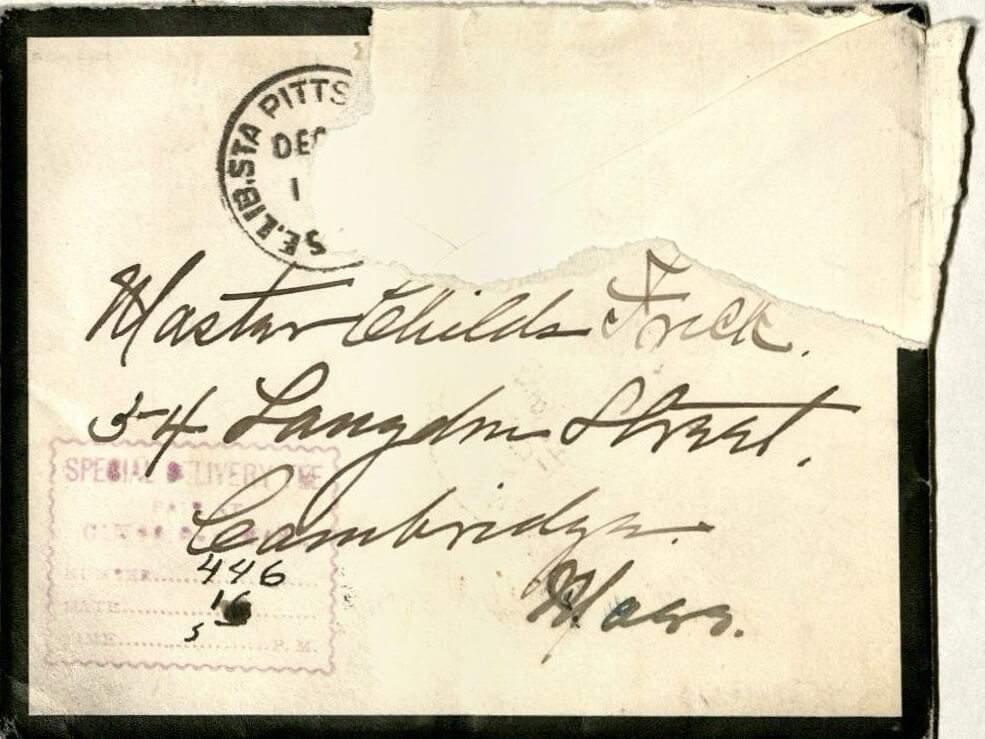 S.E.LIB.STA PITTS
DEC
1
Master Childs Frick.
34 Langdon Street.
Cambridge.
Mass.
SPECIAL DELIVERY FEE
NUMBER 446
DATE 16
TIME 5 P.M.